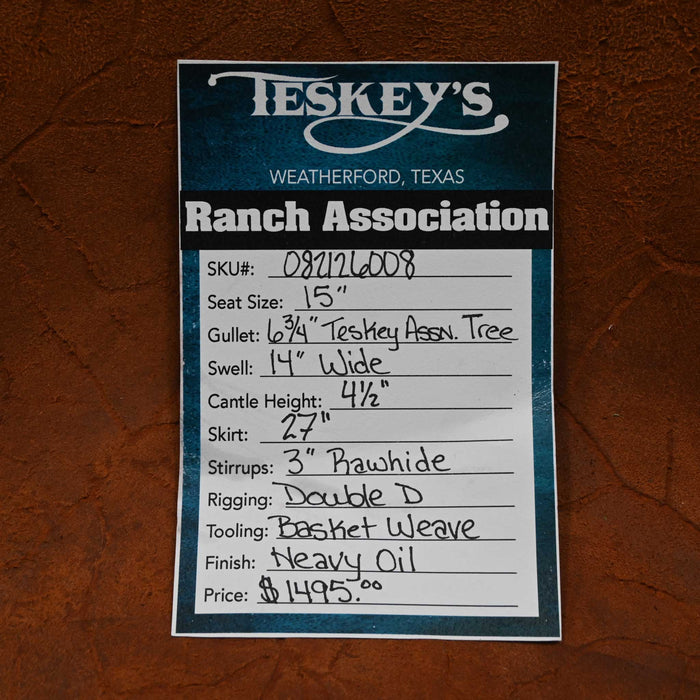 TESKEY'S
WEATHERFORD, TEXAS
Ranch Association
SKU#: 082126008
Seat Size: 15"
Gullet: 6 3/4" Teskey Assn. Tree
Swell: 14" Wide
Cantle Height: 4 1/2"
Skirt: 27"
Stirrups: 3" Rawhide
Rigging: Double D
Tooling: Basket Weave
Finish: Heavy Oil
Price: $1495.00